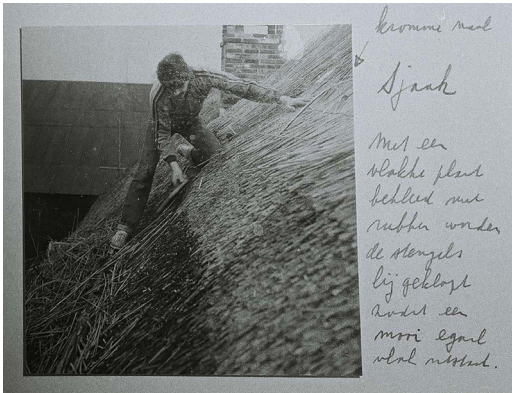 kromme naal
Sjaak
Met een
vlakke plaat
bekleed met
rubber worden
de stengels
bij geklopt
zodat een
mooi egaal
vlak ontstaat.